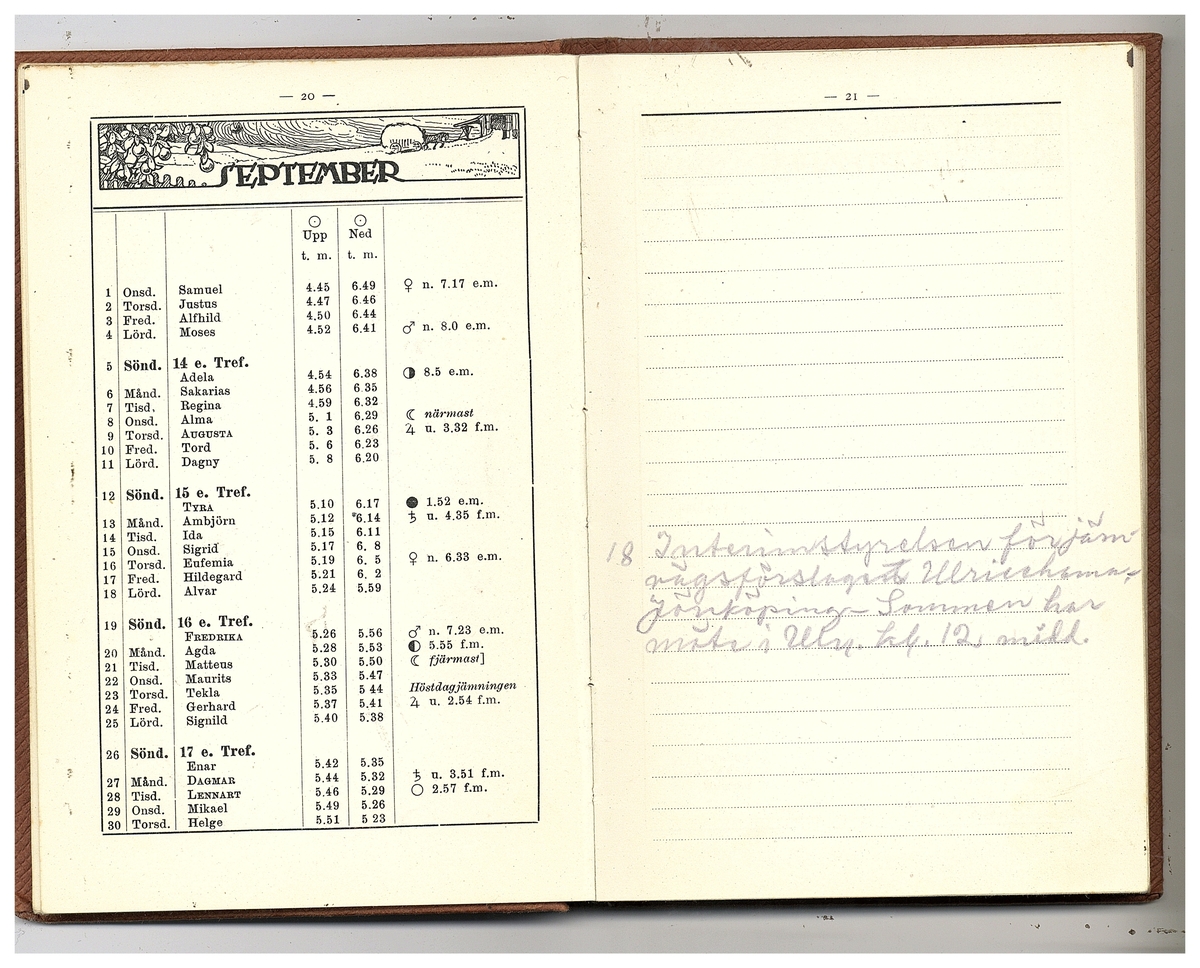 — 20 —
SEPTEMBER
☉ ☉
Upp Ned
t. m. t. m.
1 Onsd. Samuel 4.45 6.49 ♀ n. 7.17 e.m.
2 Torsd. Justus 4.47 6.46
3 Fred. Alfhild 4.50 6.44
4 Lörd. Moses 4.52 6.41 ♂ n. 8.0 e.m.
5 Sönd. 14 e. Tref.
Adela 4.54 6.38 ◑ 8.5 e.m.
6 Månd. Sakarias 4.56 6.35
7 Tisd. Regina 4.59 6.32
8 Onsd. Alma 5. 1 6.29 ☾ närmast
9 Torsd. AUGUSTA 5. 3 6.26 ♃ u. 3.32 f.m.
10 Fred. Tord 5. 6 6.23
11 Lörd. Dagny 5. 8 6.20
12 Sönd. 15 e. Tref.
TYRA 5.10 6.17 ● 1.52 e.m.
13 Månd. Ambjörn 5.12 6.14 ♄ u. 4.35 f.m.
14 Tisd. Ida 5.15 6.11
15 Onsd. Sigrid 5.17 6. 8
16 Torsd. Eufemia 5.19 6. 5 ♀ n. 6.33 e.m.
17 Fred. Hildegard 5.21 6. 2
18 Lörd. Alvar 5.24 5.59
19 Sönd. 16 e. Tref.
FREDRIKA 5.26 5.56 ♂ n. 7.23 e.m.
20 Månd. Agda 5.28 5.53 ◐ 5.55 f.m.
21 Tisd. Matteus 5.30 5.50 ☾ fjärmast]
22 Onsd. Maurits 5.33 5.47
23 Torsd. Tekla 5.35 5 44 Höstdagjämningen
24 Fred. Gerhard 5.37 5.41 ♃ u. 2.54 f.m.
25 Lörd. Signild 5.40 5.38
26 Sönd. 17 e. Tref.
Enar 5.42 5.35
27 Månd. DAGMAR 5.44 5.32 ♄ u. 3.51 f.m.
28 Tisd. LENNART 5.46 5.29 ○ 2.57 f.m.
29 Onsd. Mikael 5.49 5.26
30 Torsd. Helge 5.51 5 23
— 21 —
18 Interimstyrelsen för järn-
vägsförslaget Ulricehamn-
Jönköping-Sommen har
möte i Ulrh. kl. 12. midd.